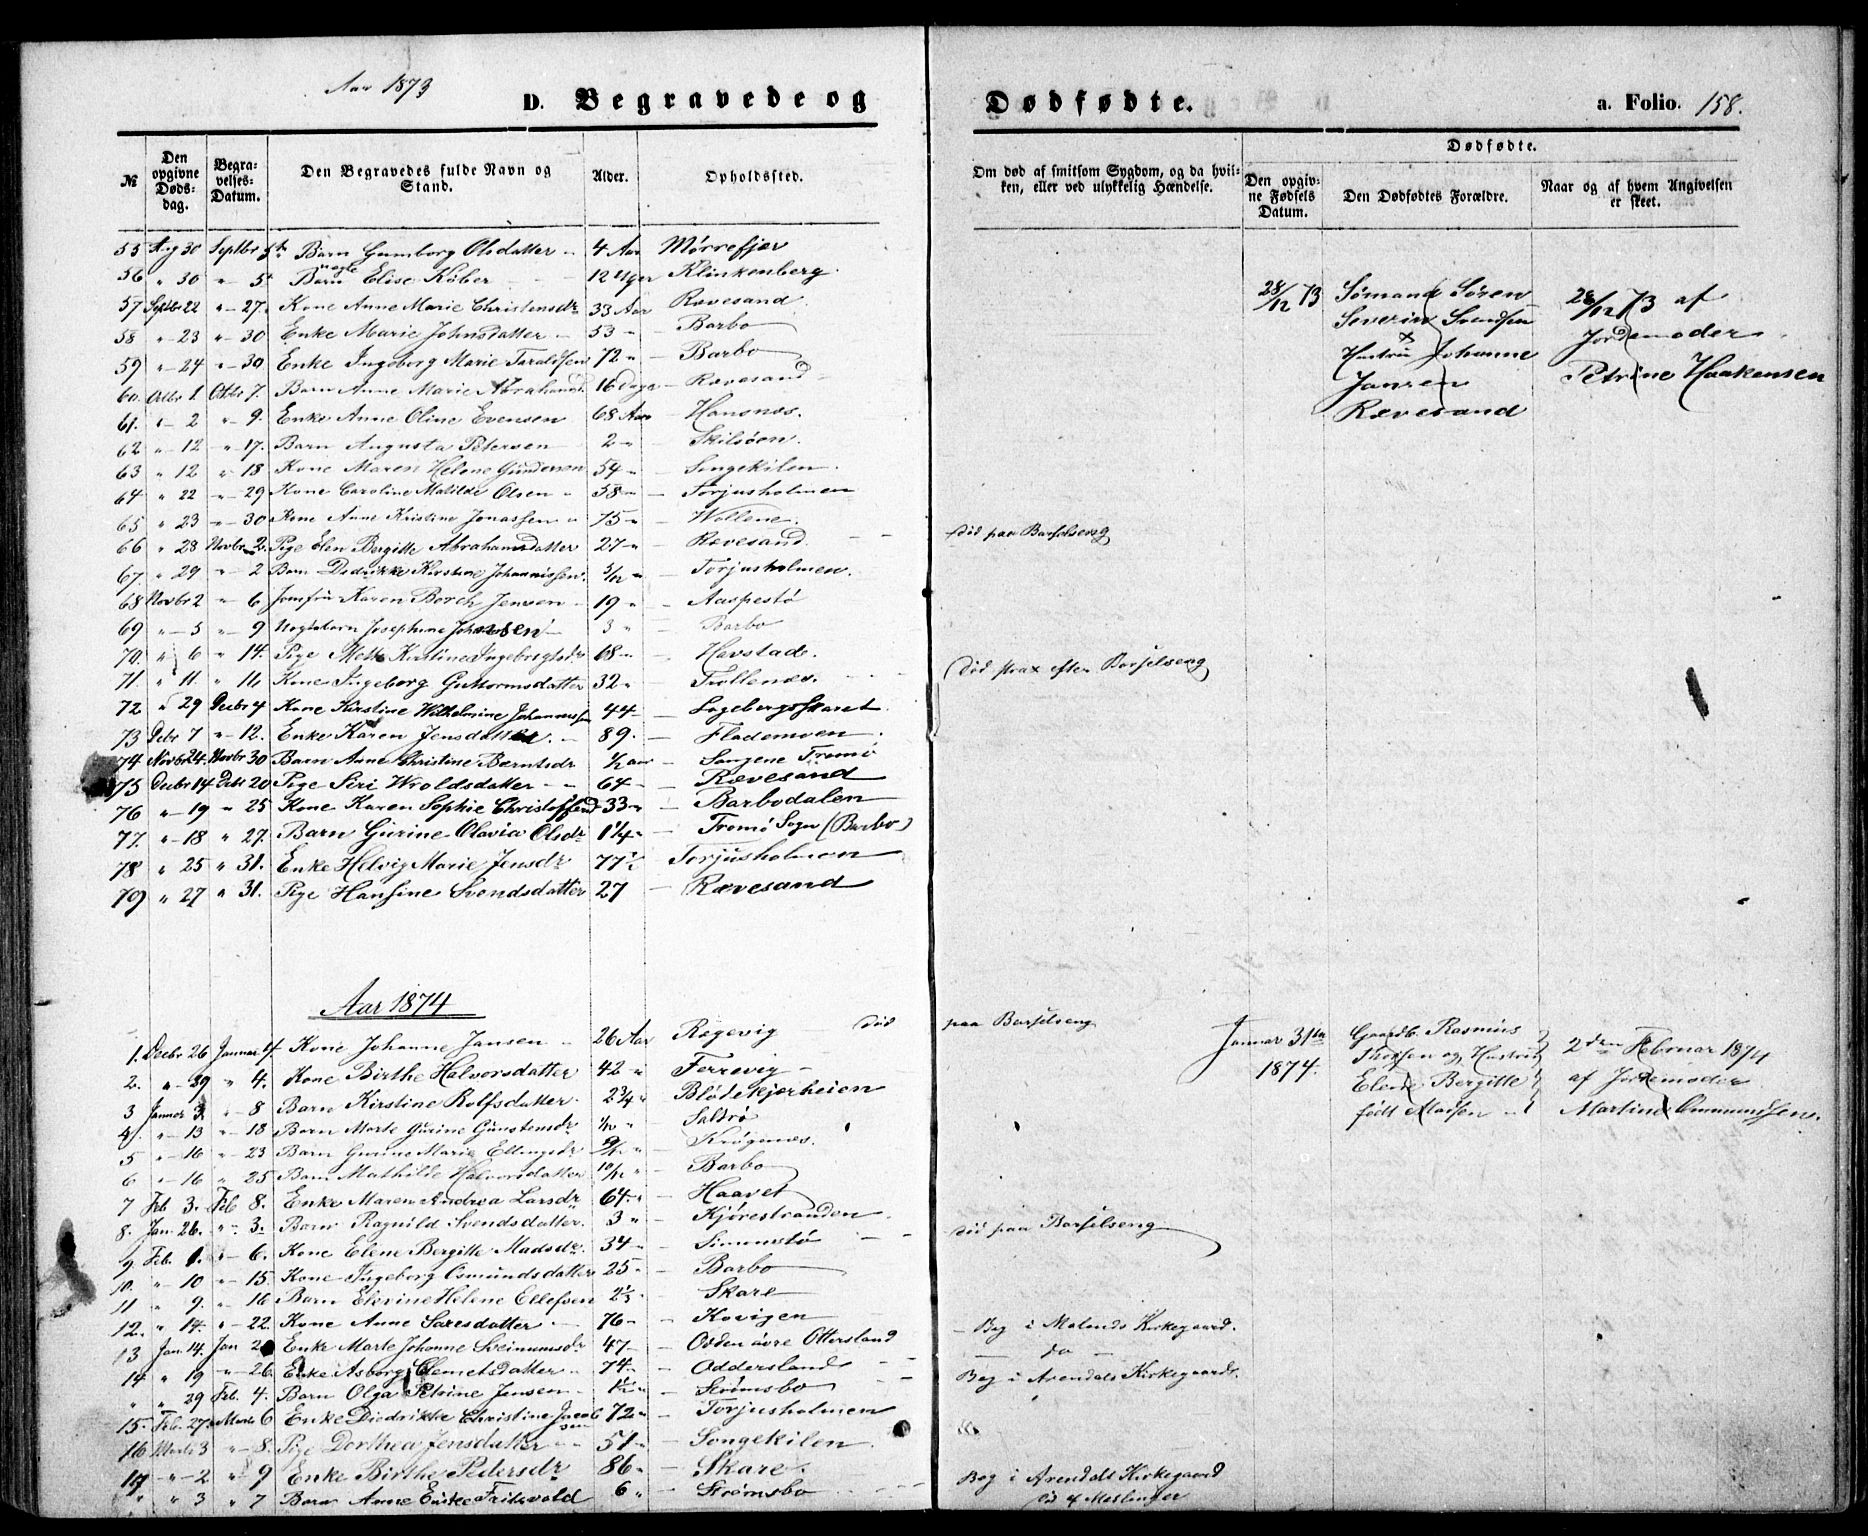 Aar 1873
D. Begravede og
Dødfødte.
a. Folio. 158.
№
Den opgivne Døds-dag.
Begra-velses-Datum.
Den Begravedes fulde Navn og Stand.
Alder.
Opholdssted.
Om død af smitsom Sygdom, og da hvil-ken, eller ved ulykkelig Hændelse.
Dødfødte.
Den opgiv-ne Fødsels Datum.
Den Dødfødtes Forældre.
Naar og af hvem Angivelsen er skeet.
55 Aug 30 Septbr 5te Barn Gumborg Olsdatter 4 Aar Mørrefjær
56 " 30 " 5 uægte Barn Elise Køber 12 Uger Klinkenberg
57 Septbr 22 " 27. Kone Anne Marie Christensdr 33 Aar Rævesand
58 " 23 " 30 Enke Marie Johnsdatter 53 " Barbo
59 " 24 " 30 Enke Ingeborg Marie Taraldsen 72 " Barbo
60 Octbr 1. Octbr 7. Barn Anne Marie Abrahamsd 16 Dage Rævesand
61. " 2 " 9. Enke Anne Oline Evensen 68 Aar Hansnæs.
62 " 12 " 17. Barn Augusta Petersen 2 " Skilsøen.
63 " 12 " 18 Kone Maren Helene Gundersen 54 " Songekilen.
64 " 22 " 29 Kone Caroline Matilde Olsen 58 " Torjusholmen
65 " 23 " 30 Kone Anne Kristine Jonassen 75 " Vollene.
66 " 28 Novbr 2. Pige Elen Bergitte Abrahamsdatter 27 " Rævesand død paa Barselseng
67 " 29 " 2 Barn Didrikke Kirstine Johannissen. 5/12 " Torjusholmen.
68 Novbr 2 " 6 Jomfru Karen Borch Jensen 19 " Aaspestø
69 " 5 " 9 Uægtebarn Josephine Johansen 3 " Barbo
70. " 6 " 14. Pige Mette Kirstine Ingebrigtsdr 68 " Havstad.
71. " 11 " 14 Kone Ingeborg Guttormsdatter 32 " Trollenæs. død strax efter Barselseng
72 " 29 Decbr 4 Kone Kirstine Wilhelmine Johannessen 44 Sagebergsskaret.
73 Debr 7 " 12. Enke Karen Jensdatter 89. Flademoen.
74 Novbr 24. Novbr 30 Barn Anne Christine Berntsdr 1/2 aar Songene Tromø
75 Decbr 14 Decbr 20 Pige Siri Wroldsdatter 64 Rævesand
76 " 19 " 25 Kone Karen Sophie Christoffersd 33 " Barbodalen
77. " 18 " 27. Barn Gurine Olavia Olsdr 1 1/4 " Tromø Sogn (Barbo)
78 " 25 " 31. Enke Helvig Marie Jensdr 77 1/2 Torjusholmen
79 " 27 " 31. Pige Hansine Svendsdatter 27 Rævesand
28/12 73 Sømand Søren Severin Svendsen
Hustru Johanne Jansen Rævesand
28/12 73 af Jordemoder Petrine Haakensen
Aar 1874
1. Decbr 26 Januar 4. Kone Johanne Jansen 26 Aar Røgevig død paa Barselseng
2. " 29 " 4. Kone Birthe Halvorsdatter 42 " Ferrevig
3 Januar 3. " 8 Barn Kirstine Rolfsdatter 2 3/4 " Blødekjærheien
4. " 13 " 18 Barn Marte Gurine Gunstensdr 1/12 " Saltrø
5 " 16 " 23 Barn Gurine Marie Ellingsdr 9/12 " Krøgenes.
6 " 16 " 25 Barn Mathilde Halvorsdatter 10/12 " Barbo
7 Feb 3. Feb 8. Enke Maren Andrea Larsdr 64. " Haavet
8. Jan. 26. " 3. Barn Ragnild Svendsdatter. 3 " Kjørestranden
9 Feb. 1. " 6. Kone Elene Bergitte Madsdr. 34 " Simonstø død paa Barselseng
10. " 10 " 15. Kone Ingeborg Osmundsdatter 25 " Barbo
11 " 9. " 16 Barn Elevine Helene Ellefsen 2 1/3 " Skare
12. " 14. " 22. Kone Anne Saresdatter 76 " Kovigen
13 Jan. 14. Jan 2 Enke Marte Johanne Sveinumsdr 47 Odden øvre Ottersland Beg i Molands Kirkegaard.
14 " 19 " 26. Enke Asborg Clemetsdatter 74 " Oddersland do
" " 29 Feb. 4. Barn Olga Petrine Jensen 1 1/2 " Strømsbo Beg i Arendals Kirkegaard.
15. Feb. 27. Marts 6 Enke Diedrikke Christine Jacobsen 72 " Torjusholmen
16 Marts 3 " 8. Pige Dorthea Jensdatter 51 " Songekilen.
17 " 2 " 9 Enke Birthe Pedersdr 86 " Skare.
" " 3 " 7 Barn Anne Enke Fritsvold 6 " Strømsbo Beg i Arendals Kirkegaard
død af Meslinger
Januar 31te 1874.
Gaardbr. Rasmus Thorsen og Hustru Elene Bergitte født Madsen
2den Februar 1874 af Jordemoder Martine Ommundsen.